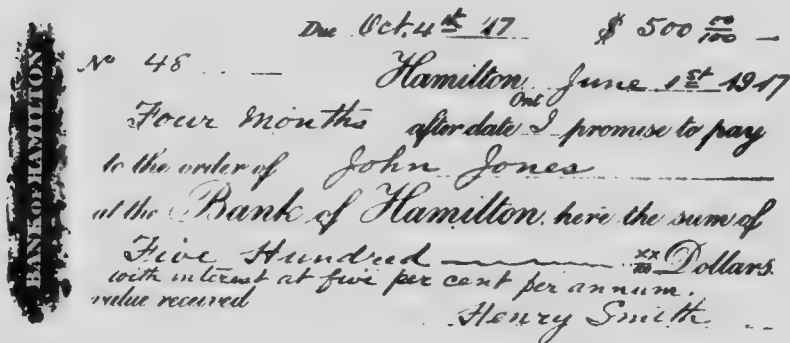 Due Oct. 4th '17 $ 500 00/100
No 48 Hamilton Ont June 1st 1917
Four Months after date I promise to pay
to the order of John Jones
at the Bank of Hamilton here the sum of
Five Hundred xx/100 Dollars.
with interest at five per cent per annum.
value received
Henry Smith
BANK OF HAMILTON